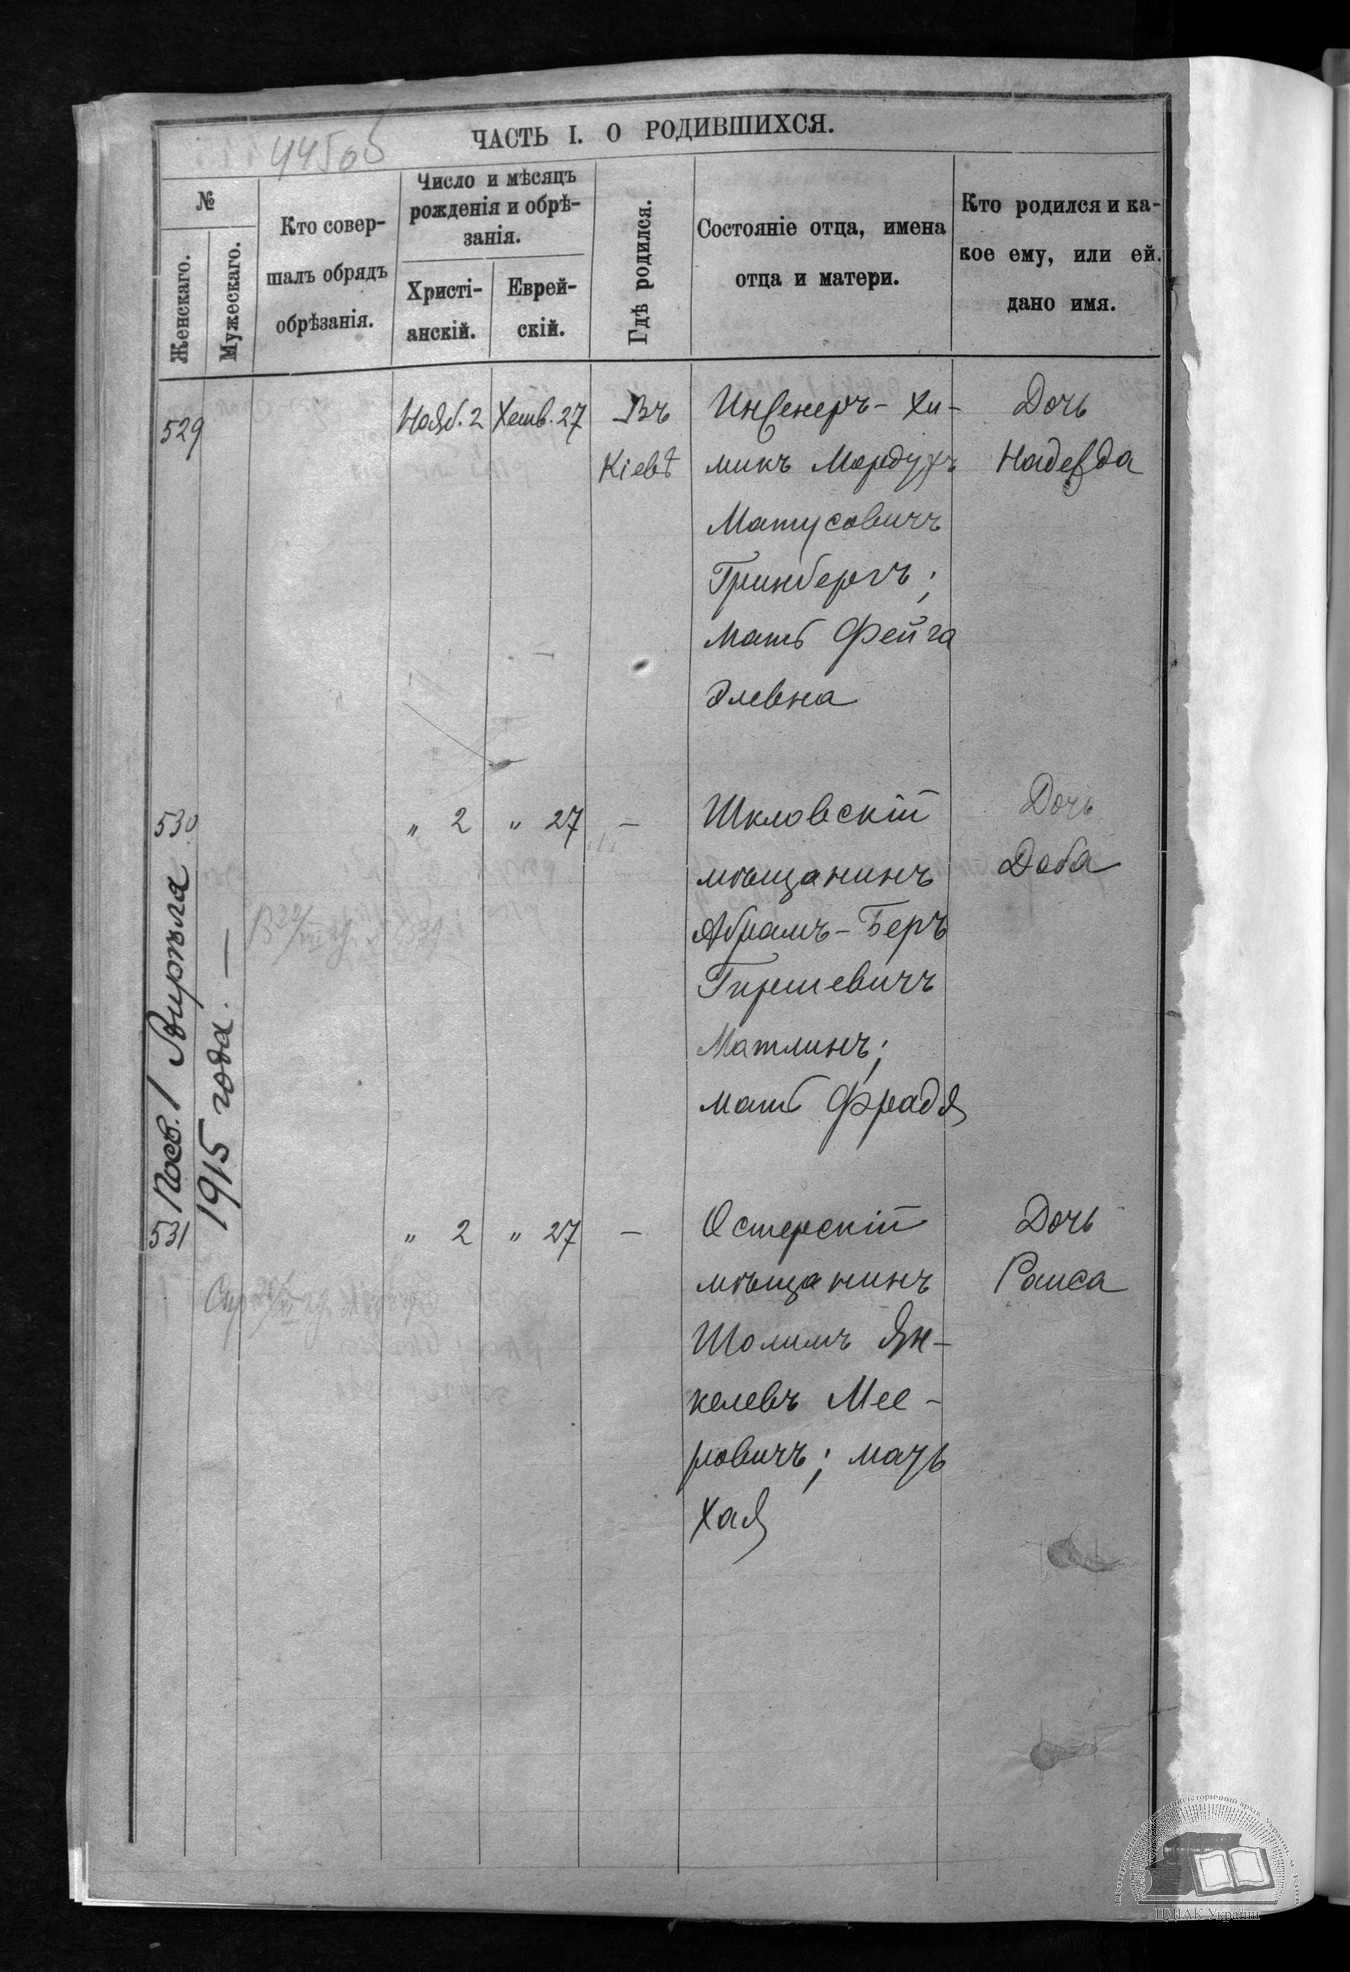 445об
ЧАСТЬ I. О РОДИВШИХСЯ.
№
Женскаго.
Мужескаго.
Кто совер-
шалъ обрядъ
обрѣзанія.
Число и мѣсяцъ
рожденія и обрѣ-
занія.
Христі-
анскій.
Еврей-
скій.
Гдѣ родился.
Состояніе отца, имена
отца и матери.
Кто родился и ка-
кое ему, или ей,
дано имя.
529
Нояб. 2
Хешв. 27
Въ
Кіевѣ
Инженеръ-хи-
микъ Мордухъ
Матусовичъ
Гринбергъ;
мать Фейга
Элевна
Дочь
Надежда
530
" 2
" 27
—
Шкловскій
мѣщанинъ
Абрамъ-Беръ
Гиршевичъ
Матлинъ;
мать Фрадя
Дочь
Доба
Посв. 1 Апрѣля
1915 года. —
531
" 2
" 27
—
Остерскій
мѣщанинъ
Шолимъ Ян-
келевъ Мее-
ровичъ; мать
Хая
Дочь
Раиса
ЦДІАК України